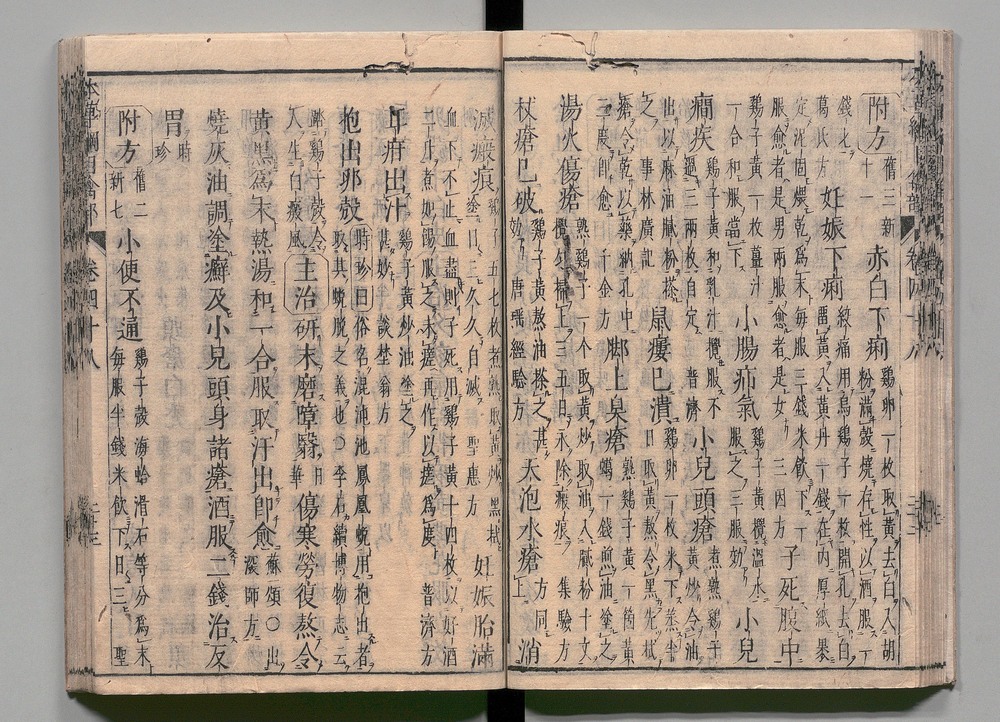 附方 舊三新十一 赤白下痢 鷄卵一枚取黃去白入胡粉滿殼燒存性以酒服一
錢匕 葛氏方 妊娠下痢 絞痛用烏鷄子一枚開孔去白留黃入黃丹一錢在內厚紙裹
定泥固煨乾爲末每服三錢米飲下一服愈者是男兩服愈者是女 三因方 子死腹中
鷄子黃一枚薑汁一合和服當下 小腸疝氣 鷄子黃攪溫水服之三服効 小兒
癇疾 鷄子黃和乳汁攪服不過三兩枚自定 普濟 小兒頭瘡 煮熟鷄子黃炒令油
出以麻油膩粉搽之 事林廣記 鼠瘻已潰 鷄卵一枚米下蒸半日取黃熬令黑先拭
瘡令乾以藥納孔中三度即愈 千金方 脚上臭瘡 熟鷄子黃一箇黃蠟一錢煎油塗之
湯火傷瘡 熟鷄子一十个取黃炒取油入膩粉十文攪勻掃上三五日永除瘢痕 集驗方
杖瘡已破 鷄子黃熬油搽之甚妙 唐瑤經驗方 天泡水瘡 方同上 消
滅瘢痕 鷄子五七枚煮熟取黃炒黑拭塗日三久久自滅 聖惠方 妊娠胎滿
血下不止血盡則子死用鷄子黃十四枚以好酒二升煮如餳服之未瘥再作以瘥爲度 普濟方
耳疳出汁 鷄子黃炒油塗之甚妙 談埜翁方
抱出卵殼 時珍曰俗名混沌池鳳凰蛻用抱出者取其蛻脫之義也〇李石續博物志云
踏鷄子殼令人生白癜風 主治 研末磨障翳 日華 傷寒勞復熬令
黃黑爲末熱湯和一合服取汗出即愈 蘇頌〇出深師方
燒灰油調塗癬及小兒頭身諸瘡酒服二錢治反
胃 時珍
附方 舊二新七 小便不通 鷄子殼海蛤滑石等分爲末每服半錢米飲下日三 聖
卷四十八
卷四十八